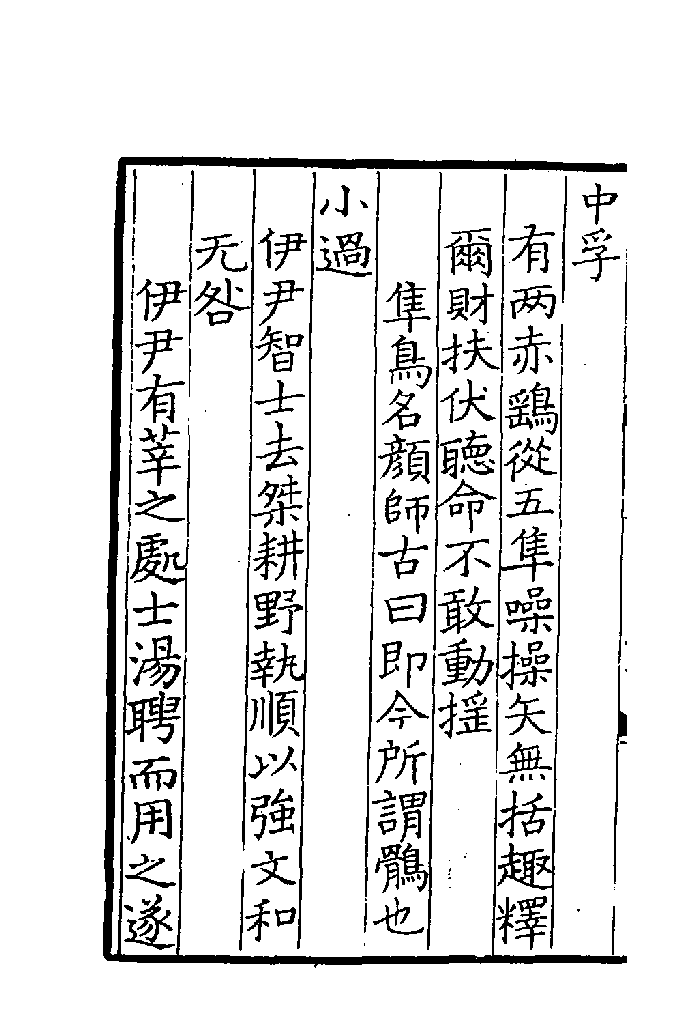 中孚
有两赤鷂從五隼噪操矢無括趣釋
爾財扶伏聽命不敢動揺
隼鳥名顔師古曰即今所謂鶻也
小過
伊尹智士去桀耕野執順以強文和
无咎
伊尹有莘之處士湯聘而用之遂